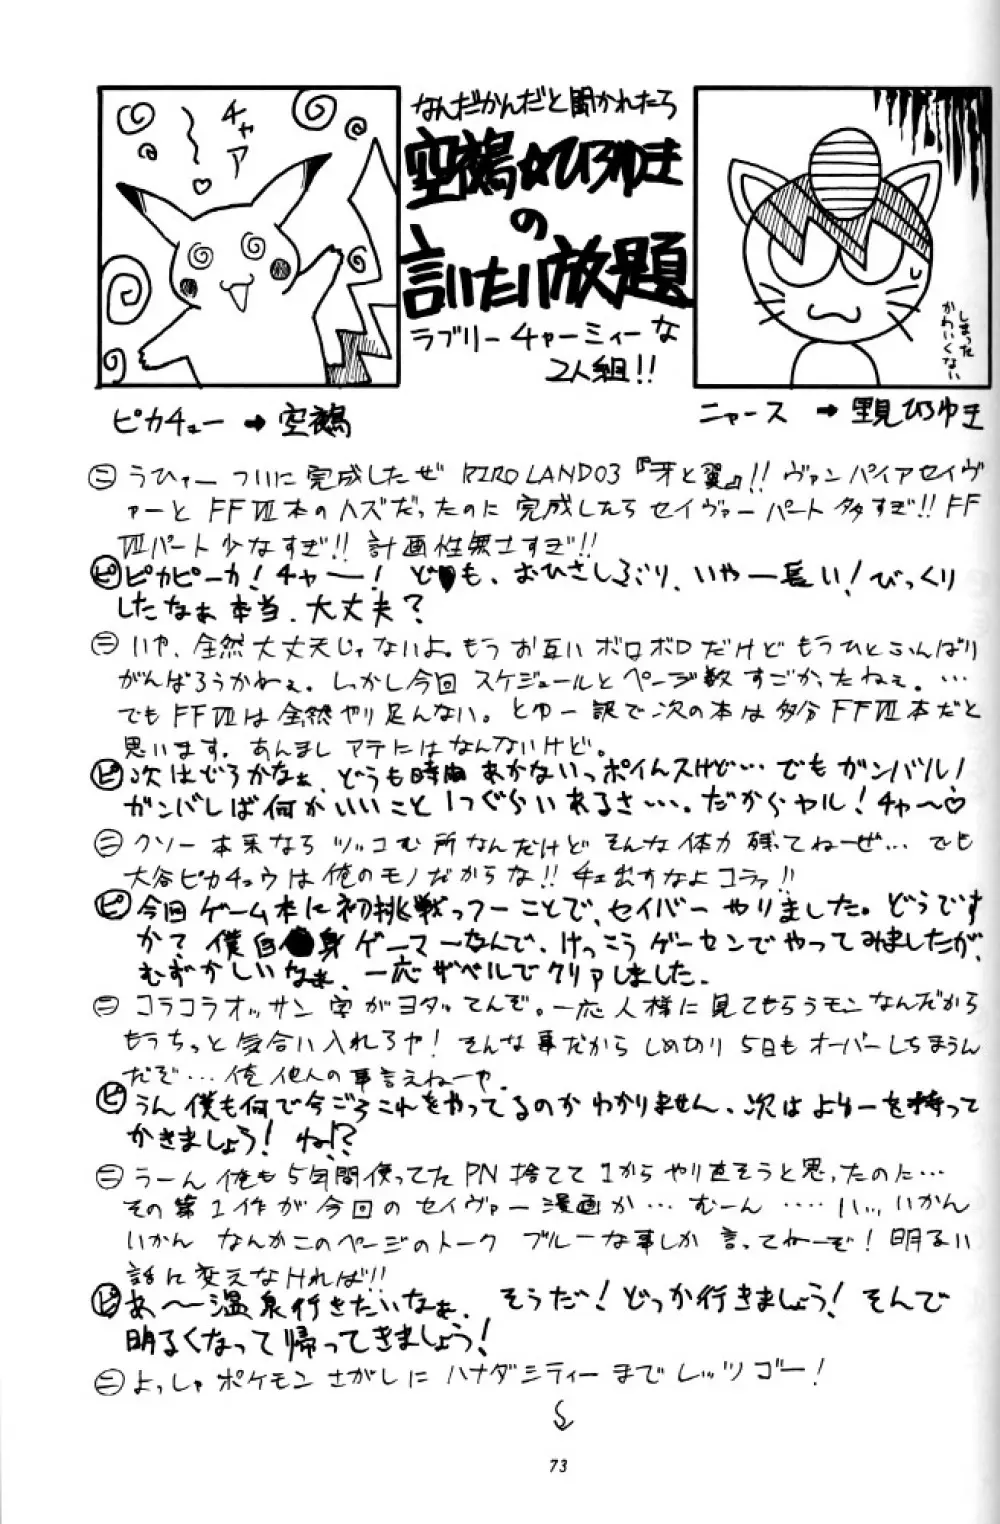 チャァ
♡
なんだかんだと聞かれたら
空鵺☆ひろゆき
の
言いたい放題
ラブリーチャーミィーな
2人組!!
しまった
かわいくない
ピカチュー→空鵺
ニャース→里見ひろゆき
ニ うひゃーついに完成したぜ RIROLAND03『牙と翼』!! ヴァンパイアセイヴ
ァーとFFⅦ本のハズだったのに完成したらセイヴァーパート多すぎ!! FF
Ⅶパート少なすぎ!! 計画性無さすぎ!!
ピ ピカピーカ! チャー! ども、おひさしぶり、いやー長い! びっくり
したなぁ本当、大丈夫?
ニ いや、全然大丈夫じゃないよ。もうお互いボロボロだけどもうひとふんばり
がんばろうかねぇ。しっかし今回スケジュールとページ数すごかったねぇ。…
でもFFⅦは全然やり足んない。とゆー訳で次の本は多分FFⅦ本だと
思います。あんましアテにはなんないけど。
ピ 次はどうかなぁ、どうも時間あかないっポイんスけど…でもガンバル!
ガンバレば何かいいこと1つぐらいあるさ…。だからヤル! チャ〜♡
ニ クソー本来ならツッコむ所なんだけどそんな体力残ってねーぜ…でも
大谷ピカチュウは俺のモノだからな!! チェ出すなよコラァ!!
ピ 今回ゲーム本に初挑戦っつーことで、セイバーやりました。どうです
か? 僕自身ゲーマーなんで、けっこうゲーセンでやってみましたが、
むずかしいなぁ、一応ザベルでクリアしました。
ニ コラコラオッサン字がヨタってんぞ。一応人様に見てもらうモンなんだから
もうちっと気合い入れろや! そんな事だからしめきり5日もオーバーしちまうん
だぞ…俺他人の事言えねーや。
ピ うん僕も何で今ごろこれをやってるのかわかりません、次はよゆーを持って
かきましょう! ね!?
ニ うーん俺も5年間使ってたPN捨てて1からやり直そうと思ったのに…
その第1作が今回のセイヴァー漫画か…むーん‥‥ハッ、いかん
いかんなんかこのページのトークブルーな事しか言ってねーぞ! 明るい
話に変えなければ!!
ピ あ〜温泉行きたいなぁ、そうだ! どっか行きましょう! そんで
明るくなって帰ってきましょう!
ニ よっしゃポケモンさがしにハナダシティーまでレッツゴー!
73